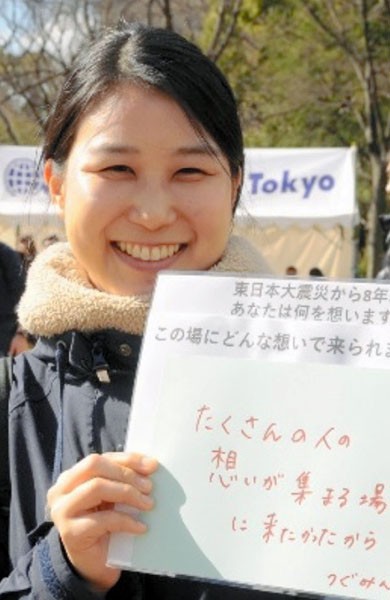 Tokyo
東日本大震災から8年
あなたは何を想います
この場にどんな想いで来られま
たくさんの人の
想いが集まる場
に来たかったから
つぐみん